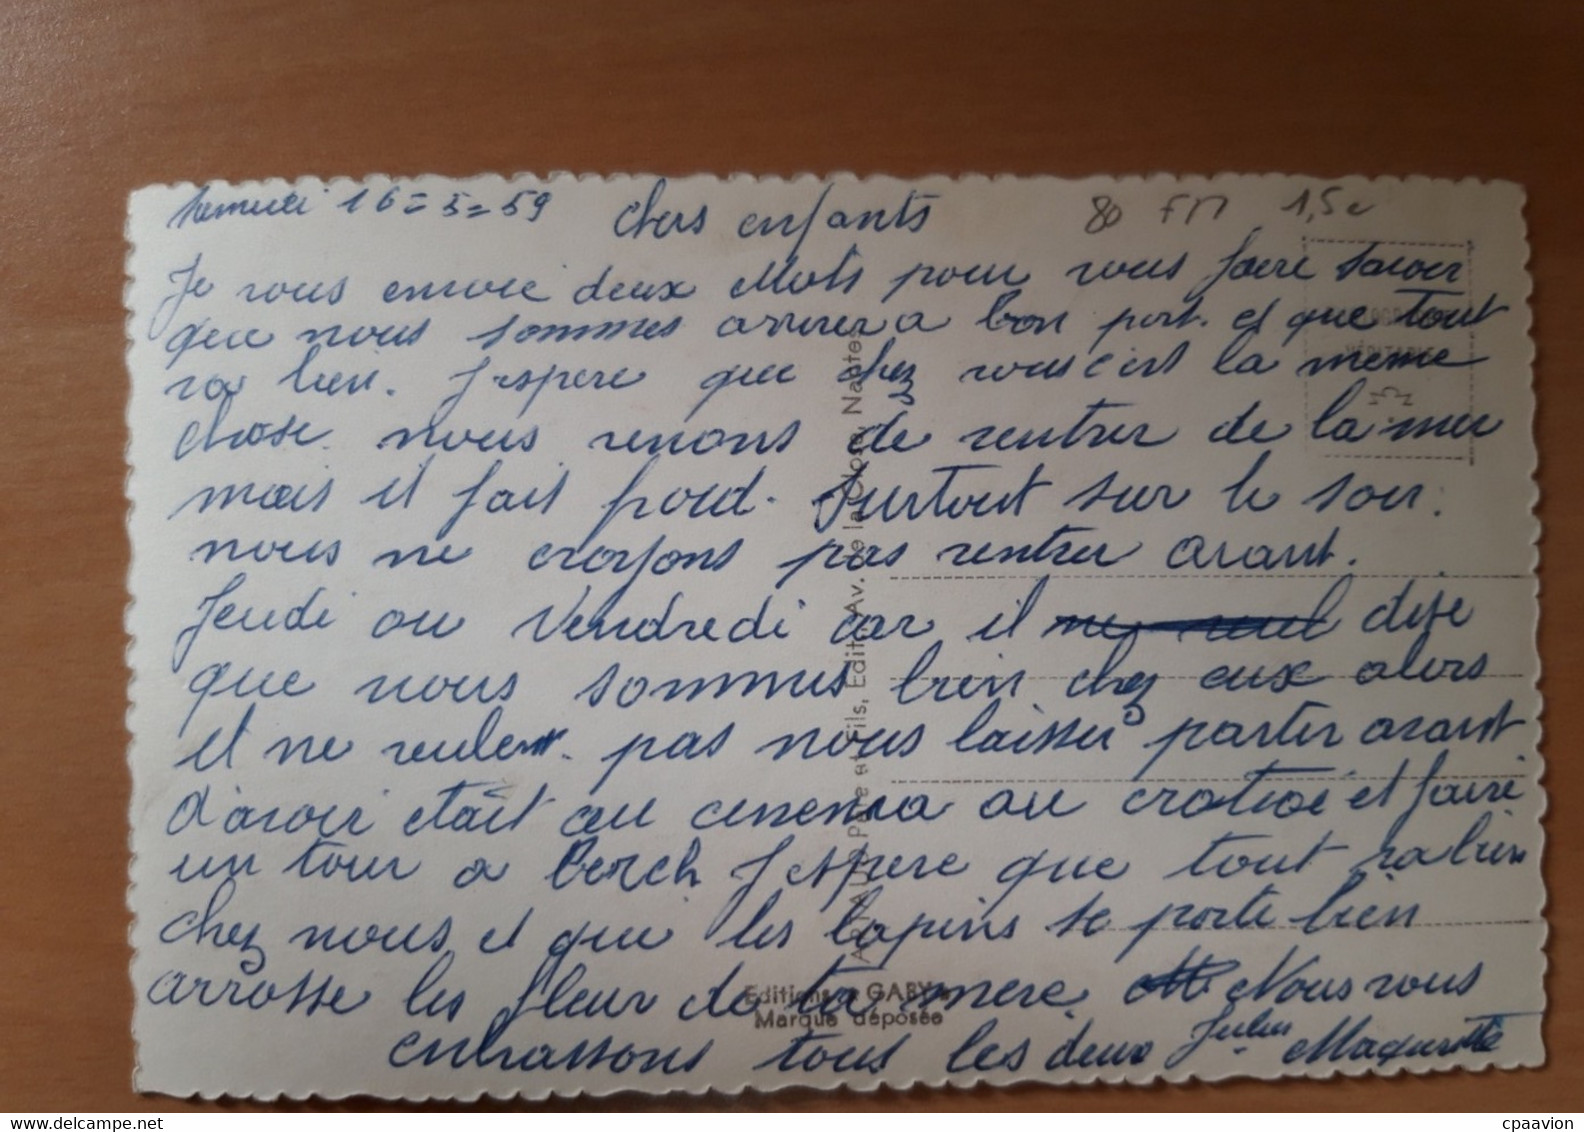 Samedi 16=5=59 chers enfants 80 FM 1,5€
Je vous envoie deux Mots pour vous faire savoir
que nous sommes arriver a bon port. et que tout
va bien. J'espere que chez vous c'est la meme
chose nous venons de rentrer de la mer
mais il fait froid. Surtout sur le soir.
nous ne croyons pas rentrer avant.
Jeudi ou Vendredi car il dise
que nous sommes bien chez eux alors
il ne veulent pas nous laisser partir avant
d'avoir était au cinema au et faire
un tour a Berch J'espere que tout va bien
chez nous et que les lapins se porte bien
arrosse les fleur de ta mere. Nous vous
enbrassons tous les deux Jules Maguerite
VÉRITABLE
Père et Fils, Edit., Av. de la Close, Nantes
Editions GABY
Marque déposée
delcampe.net
cpaavion